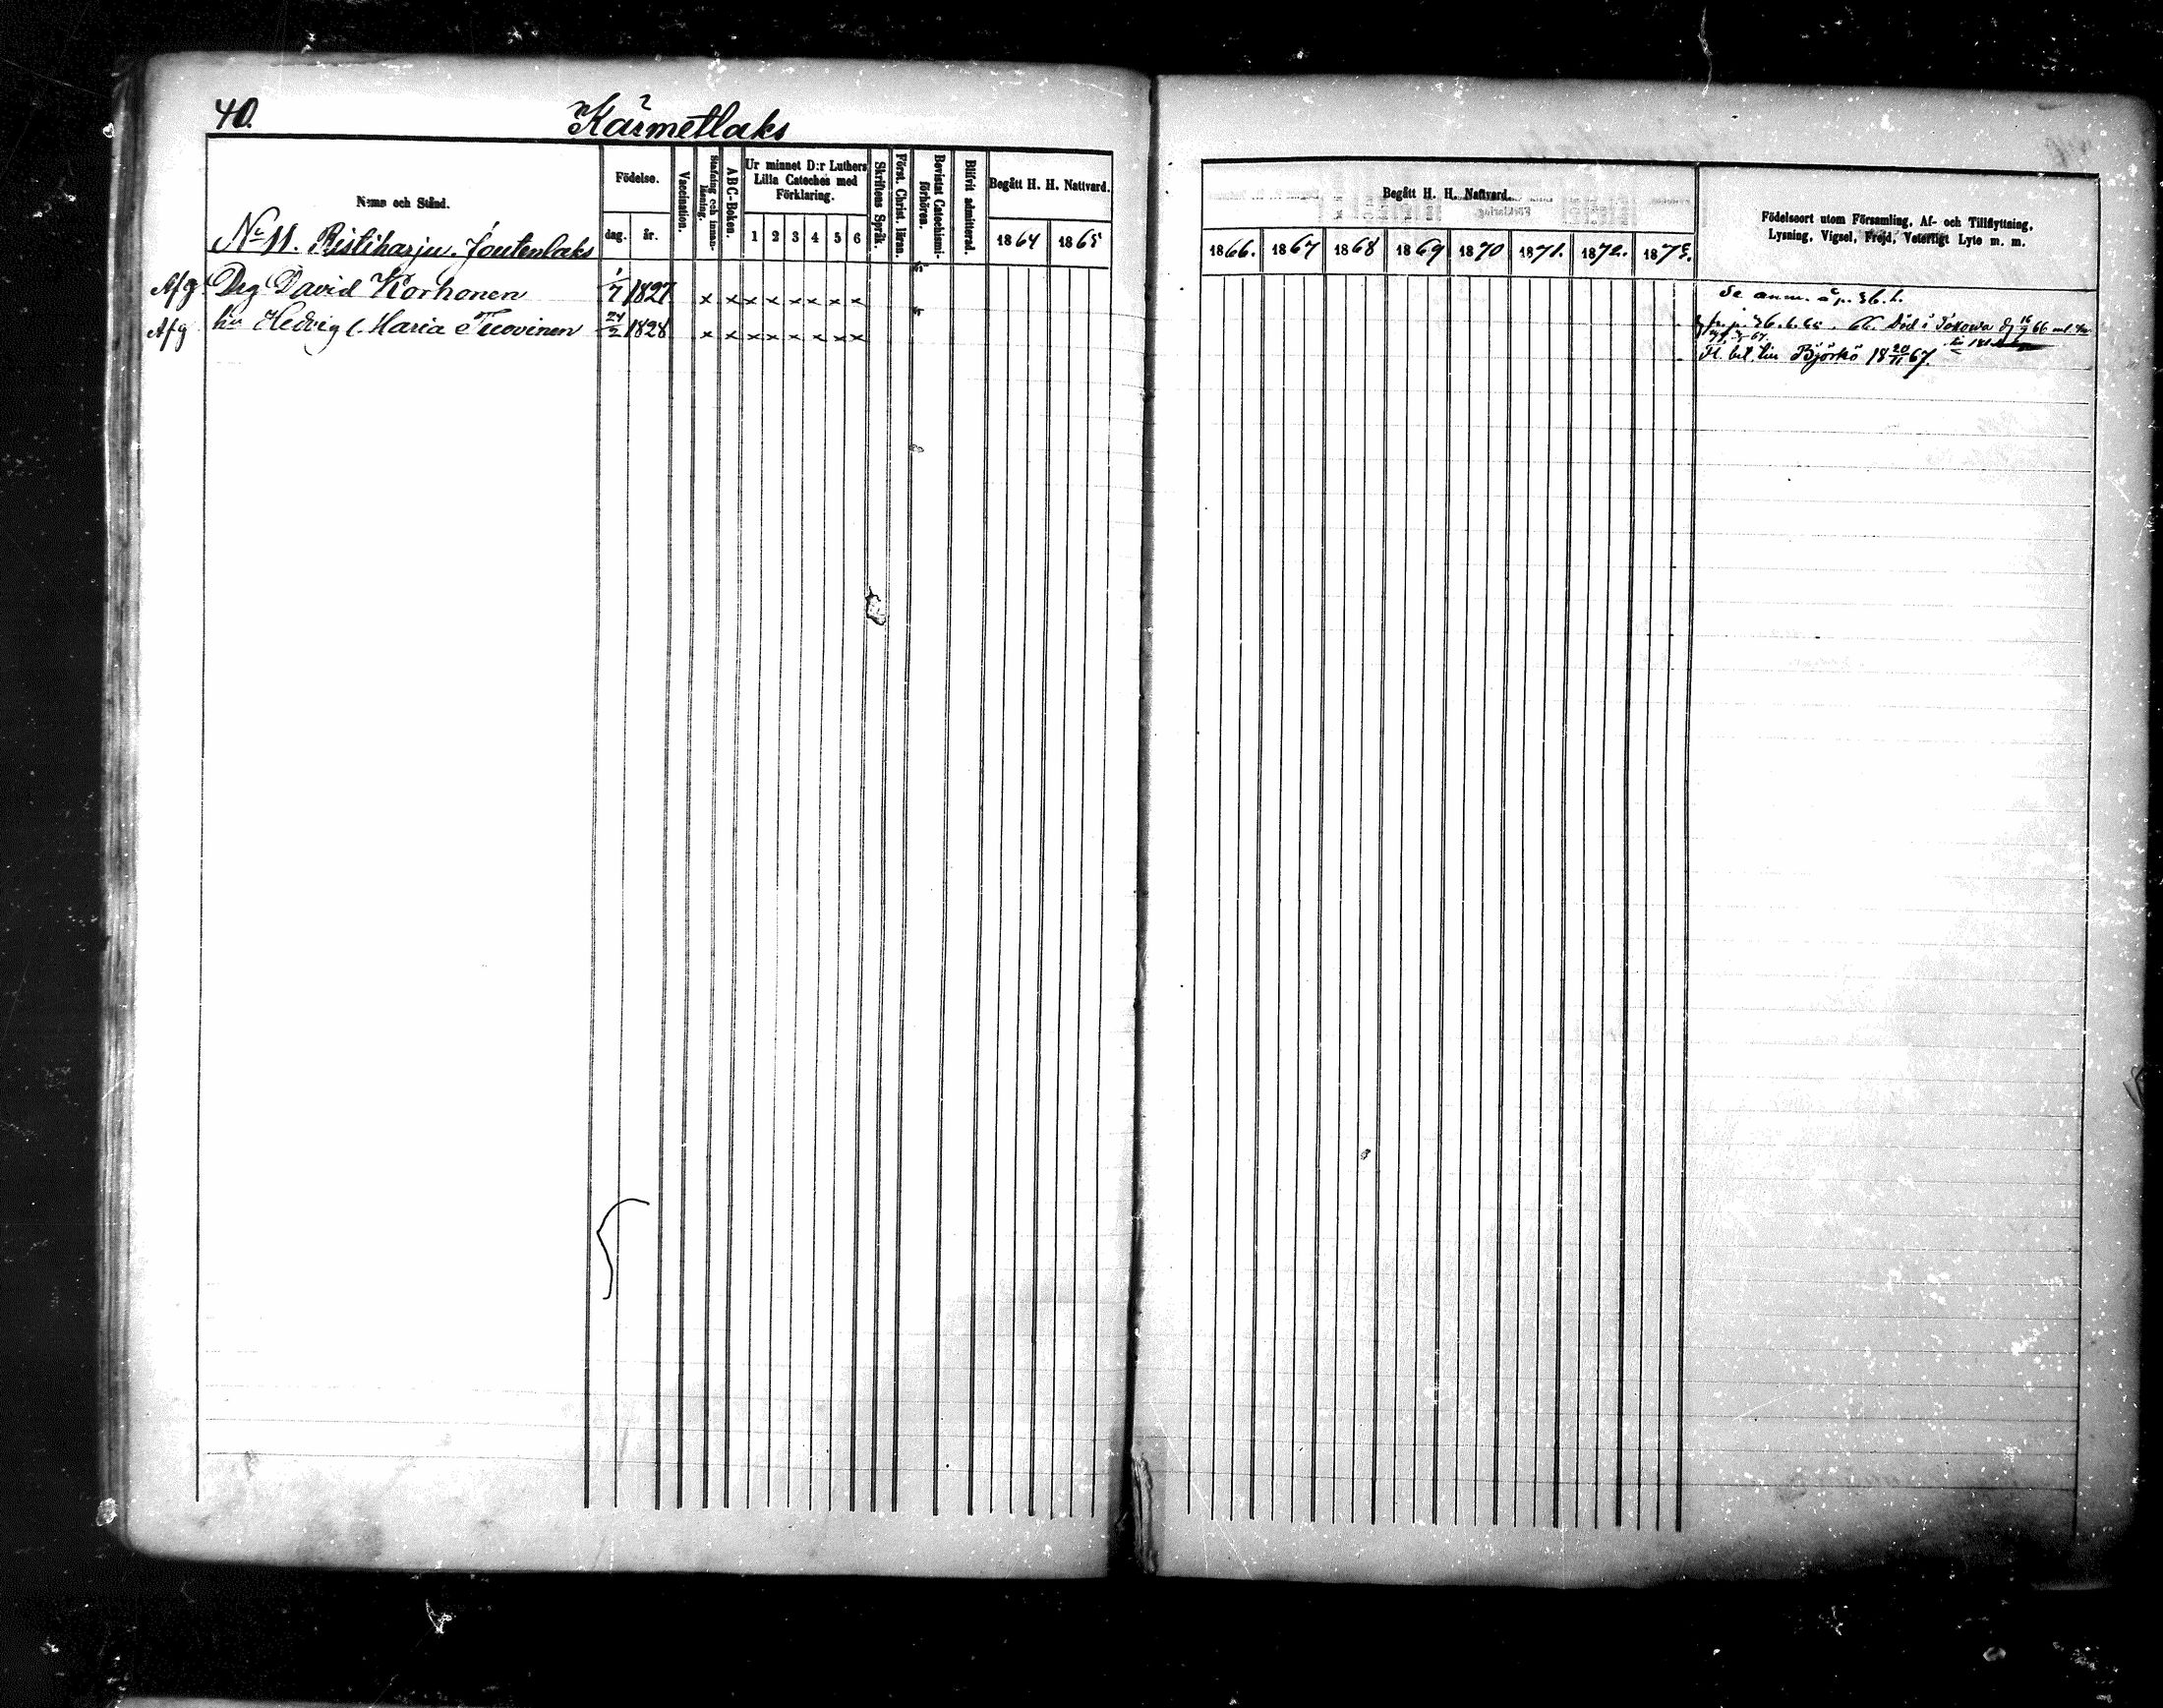 40.
Kärmetlaks
Namn och Stånd.
Födelse.
dag. år.
Vaccination.
Stafning och innanläsning.
ABC-Boken.
Ur minnet D:r Luthers Lilla Cateches med Förklaring.
1 2 3 4 5 6
Skriftens Språk.
Först. Christ. läran.
Bevistat Catechismiförhören.
Blifvit admitterad.
Begått H. H. Nattvard.
1864 1865
No 11. Ristiharju. Joutenlaks
Afg. Drg David Korhonen 1/7 1827 x x x x x x x x
Afg hu Hedvig Maria Tuovinen 24/2 1828 x x x x x x x x
Begått H. H. Nattvard.
1866. 1867 1868 1869 1870 1871. 1872. 1873.
Födelseort utom Församling, Af- och Tillflyttning,
Lysning, Vigsel, Frejd, Veterligt Lyte m. m.
Se anm. å p. 36.b.
Död i 66
Fl. bet. till Björkö 18 20/11 67.